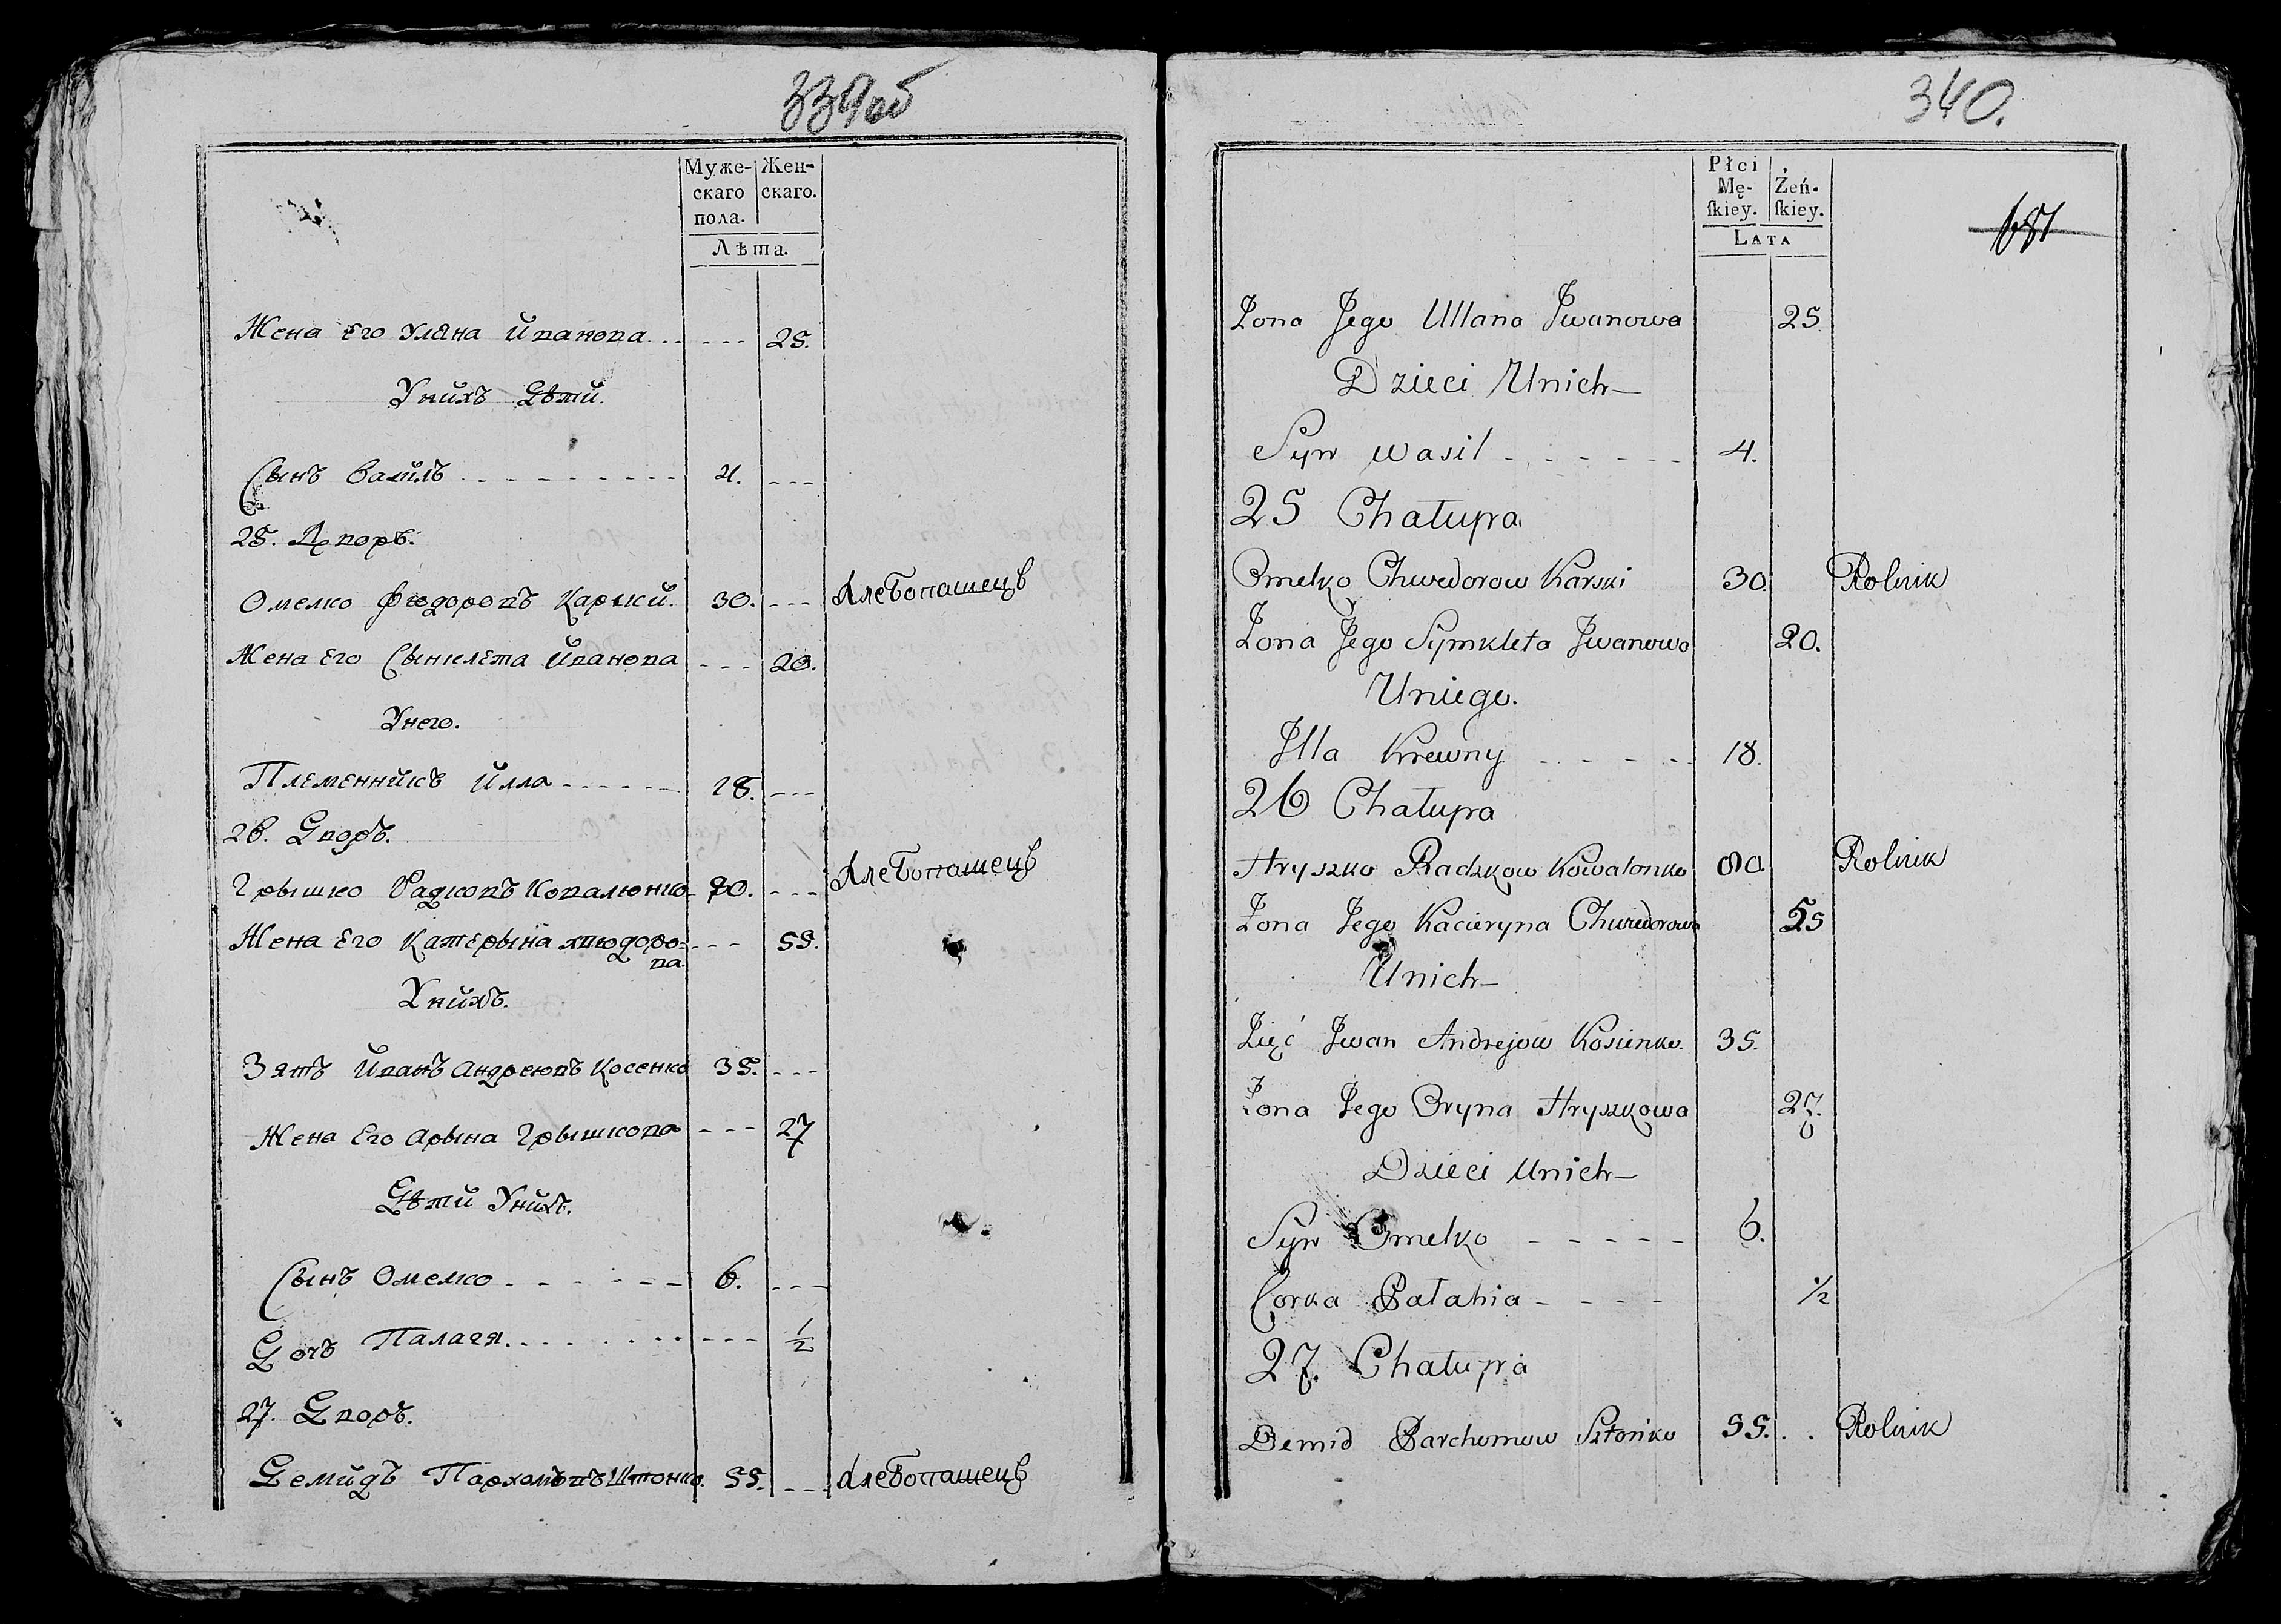 339об
Муже-
скаго
пола.
Жен-
скаго.
Лѣта.
Жена Его Уляна Иванова 25.
У нихъ Дѣти
Сынъ Василь 4.
25. Дворъ.
Омелко Фѣодоровъ Карский. 30. Хлебопашецъ
Жена Его Сынклета Иванова 20.
У него.
Племенникъ Илла 18.
26. Дворъ.
Грышко Радковъ Ковалюнко 80. Хлебопашецъ
Жена Его Катерына Хведоро= 55.
ва.
У нихъ.
Зять Иванъ Андреювъ Косенко 35.
Жена Его Арына Грышкова 27
Дѣти У нихъ.
Сынъ Омелко 6.
Дочь Палагя 1/2
27. Дворъ.
Демидъ Пархомовъ Штонко. 55. Хлебопашецъ
340.
Płci
Mę-
ſkiey.
Żeń-
ſkiey.
LATA
681
Żona Jego Ullana Jwanowa 25
Dzieci Unich
Syn Wasil 4.
25 Chałupa
Omelko Chwedorow Karski 30. Rolnik
Żona Jego Symkleta Jwanowa 20.
Uniego.
Jlla Krewny 18.
26 Chałupa
Hryszko Radzkow Kowalonko 80 Rolnik
Żona Jego Kacieryna Chwedorowa 55
Unich
Zięć Jwan Andrejow Kosienko. 35.
Żona Jego Oryna Hryszkowa 27.
Dzieci Unich
Syn Omelko 6.
Corka Pałahia 1/2
27. Chałupa
Demid Parchomow Sztońko 55. Rolnik